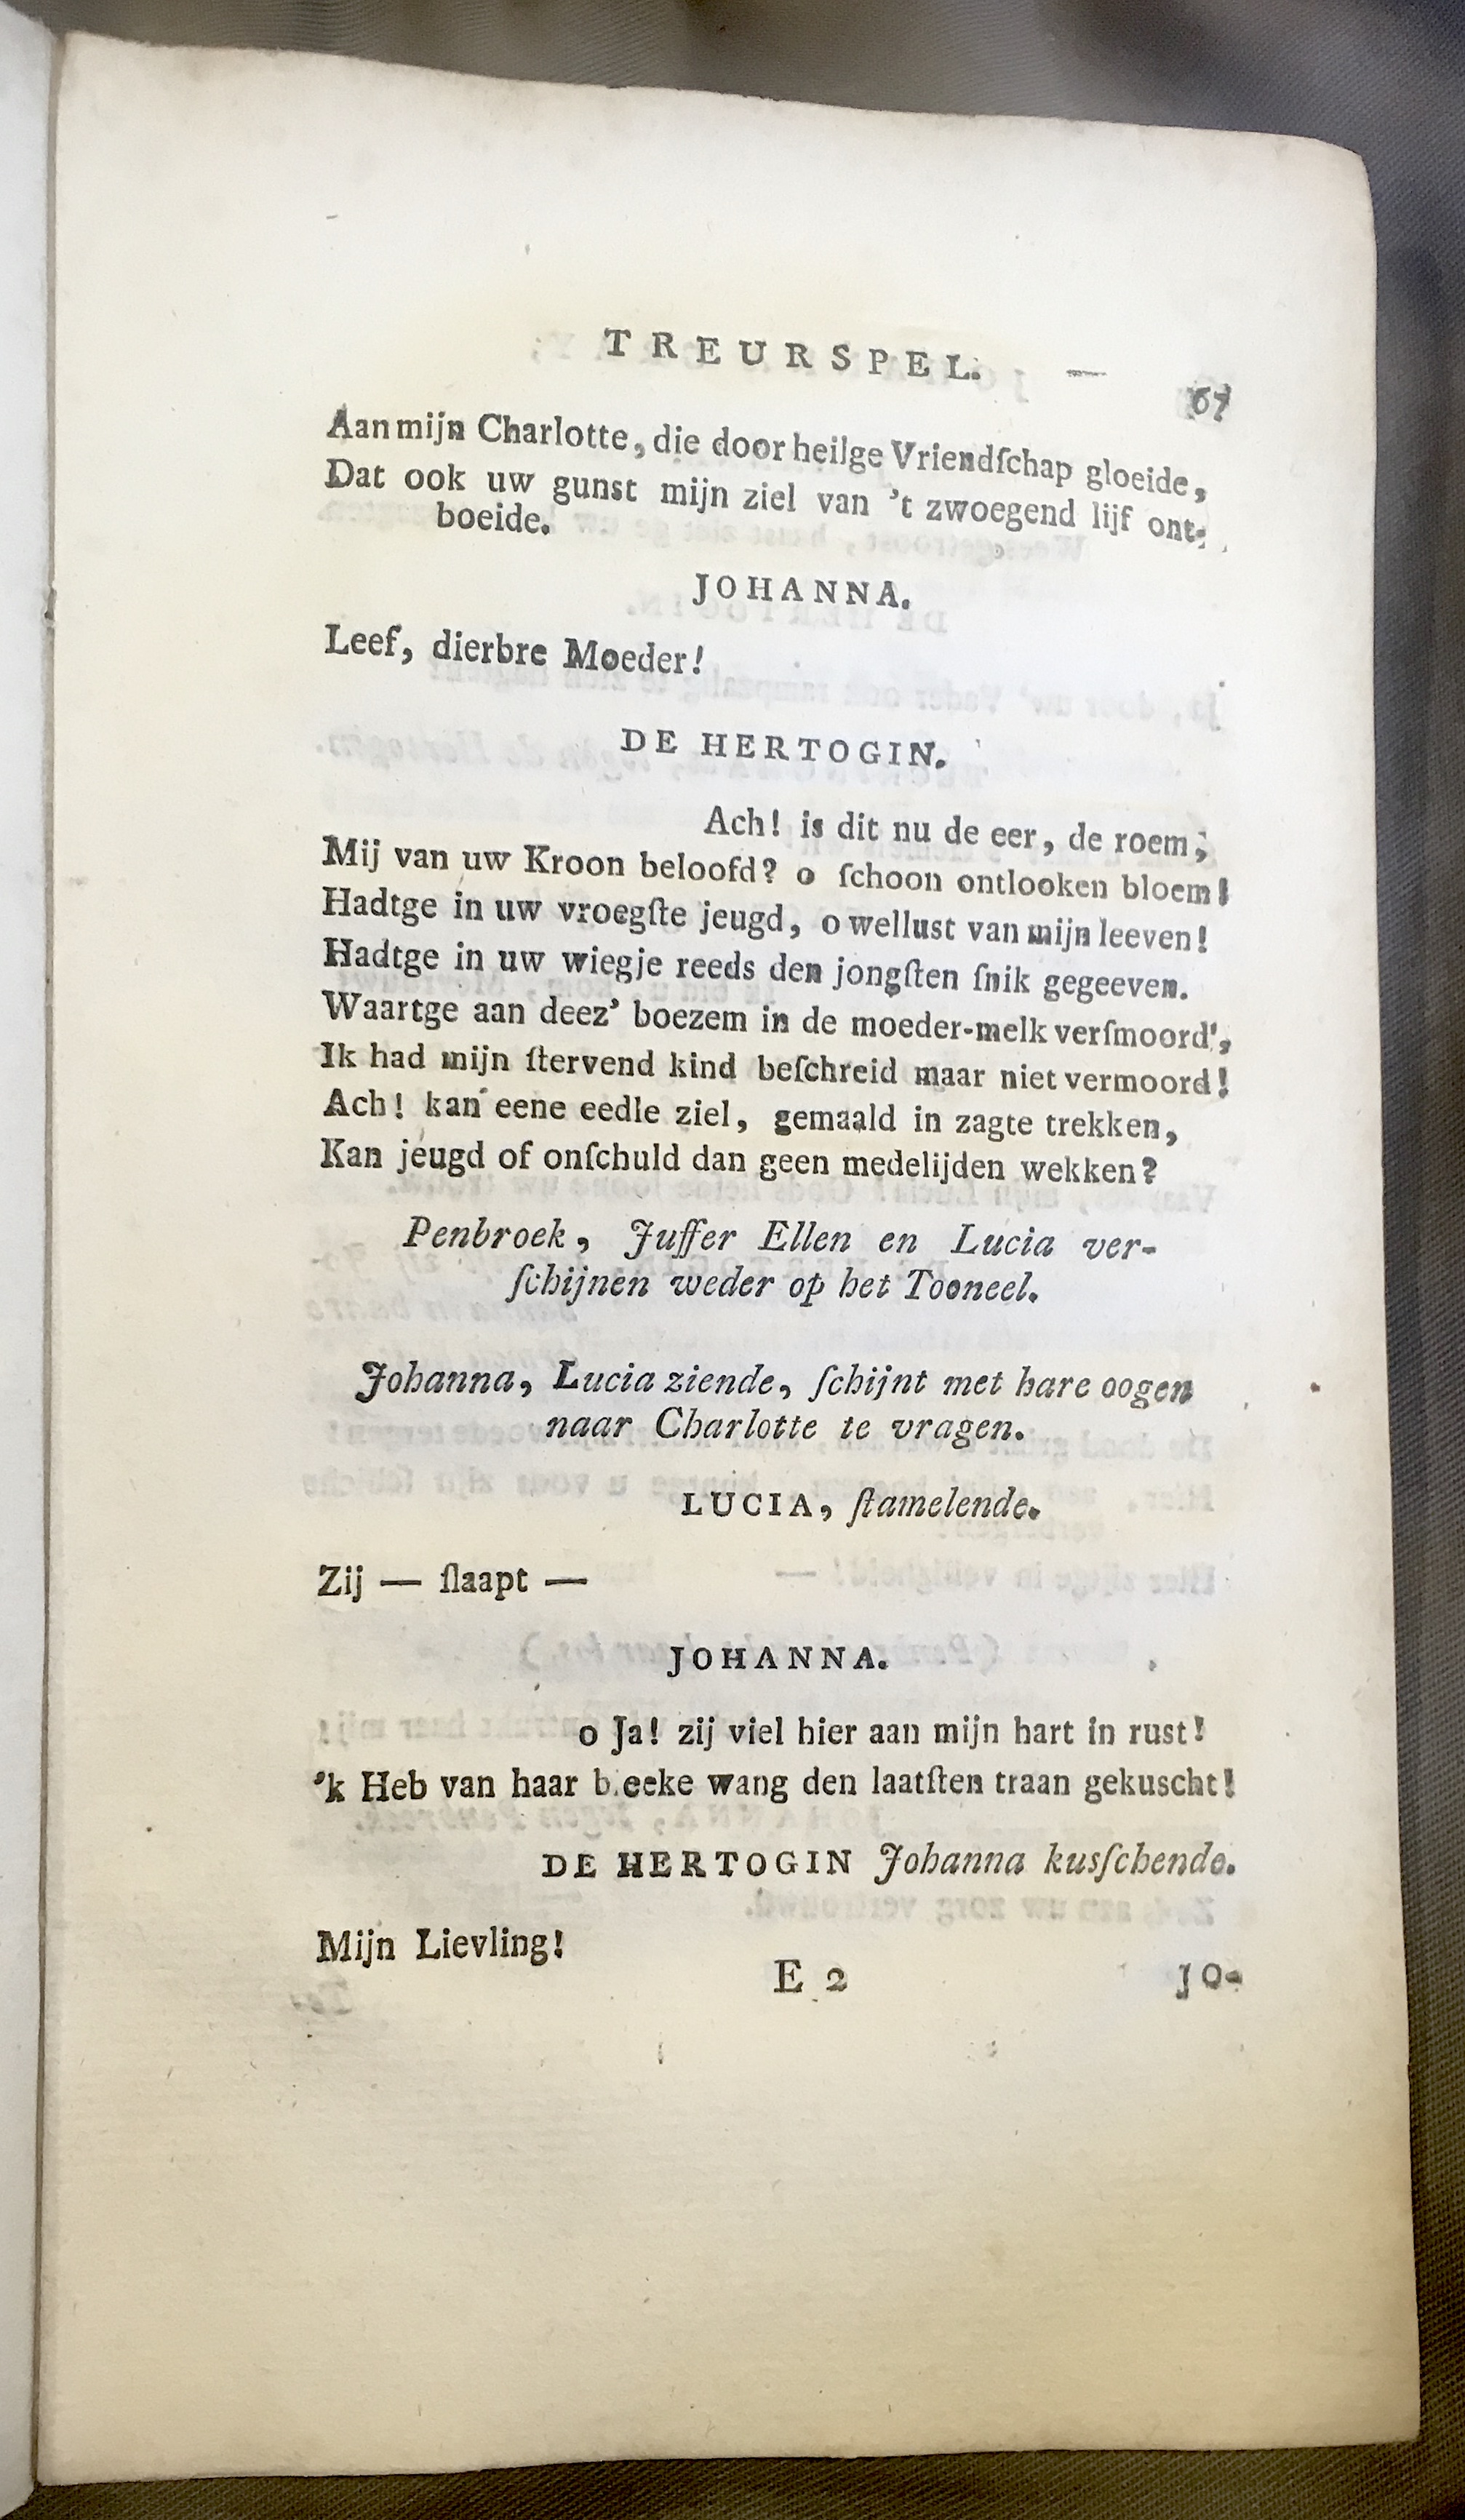 TREURSPEL. — 67
Aan mijn Charlotte, die door heilge Vriendſchap gloeide,
Dat ook uw gunst mijn ziel van 't zwoegend lijf ont-
boeide.
JOHANNA.
Leef, dierbre Moeder!
DE HERTOGIN.
Ach! is dit nu de eer, de roem,
Mij van uw Kroon beloofd? o ſchoon ontlooken bloem!
Hadtge in uw vroegſte jeugd, o wellust van mijn leeven!
Hadtge in uw wiegje reeds den jongſten ſnik gegeeven.
Waartge aan deez' boezem in de moeder-melk verſmoord',
Ik had mijn ſtervend kind beſchreid maar niet vermoord!
Ach! kan eene eedle ziel, gemaald in zagte trekken,
Kan jeugd of onſchuld dan geen medelijden wekken?
Penbroek, Juffer Ellen en Lucia ver-
ſchijnen weder op het Tooneel.
Johanna, Lucia ziende, ſchijnt met hare oogen
naar Charlotte te vragen.
LUCIA, ſtamelende.
Zij — ſlaapt —
JOHANNA.
o Ja! zij viel hier aan mijn hart in rust!
'k Heb van haar bleeke wang den laatſten traan gekuscht!
DE HERTOGIN Johanna kusſchende.
Mijn Lievling!
E 2 JO-